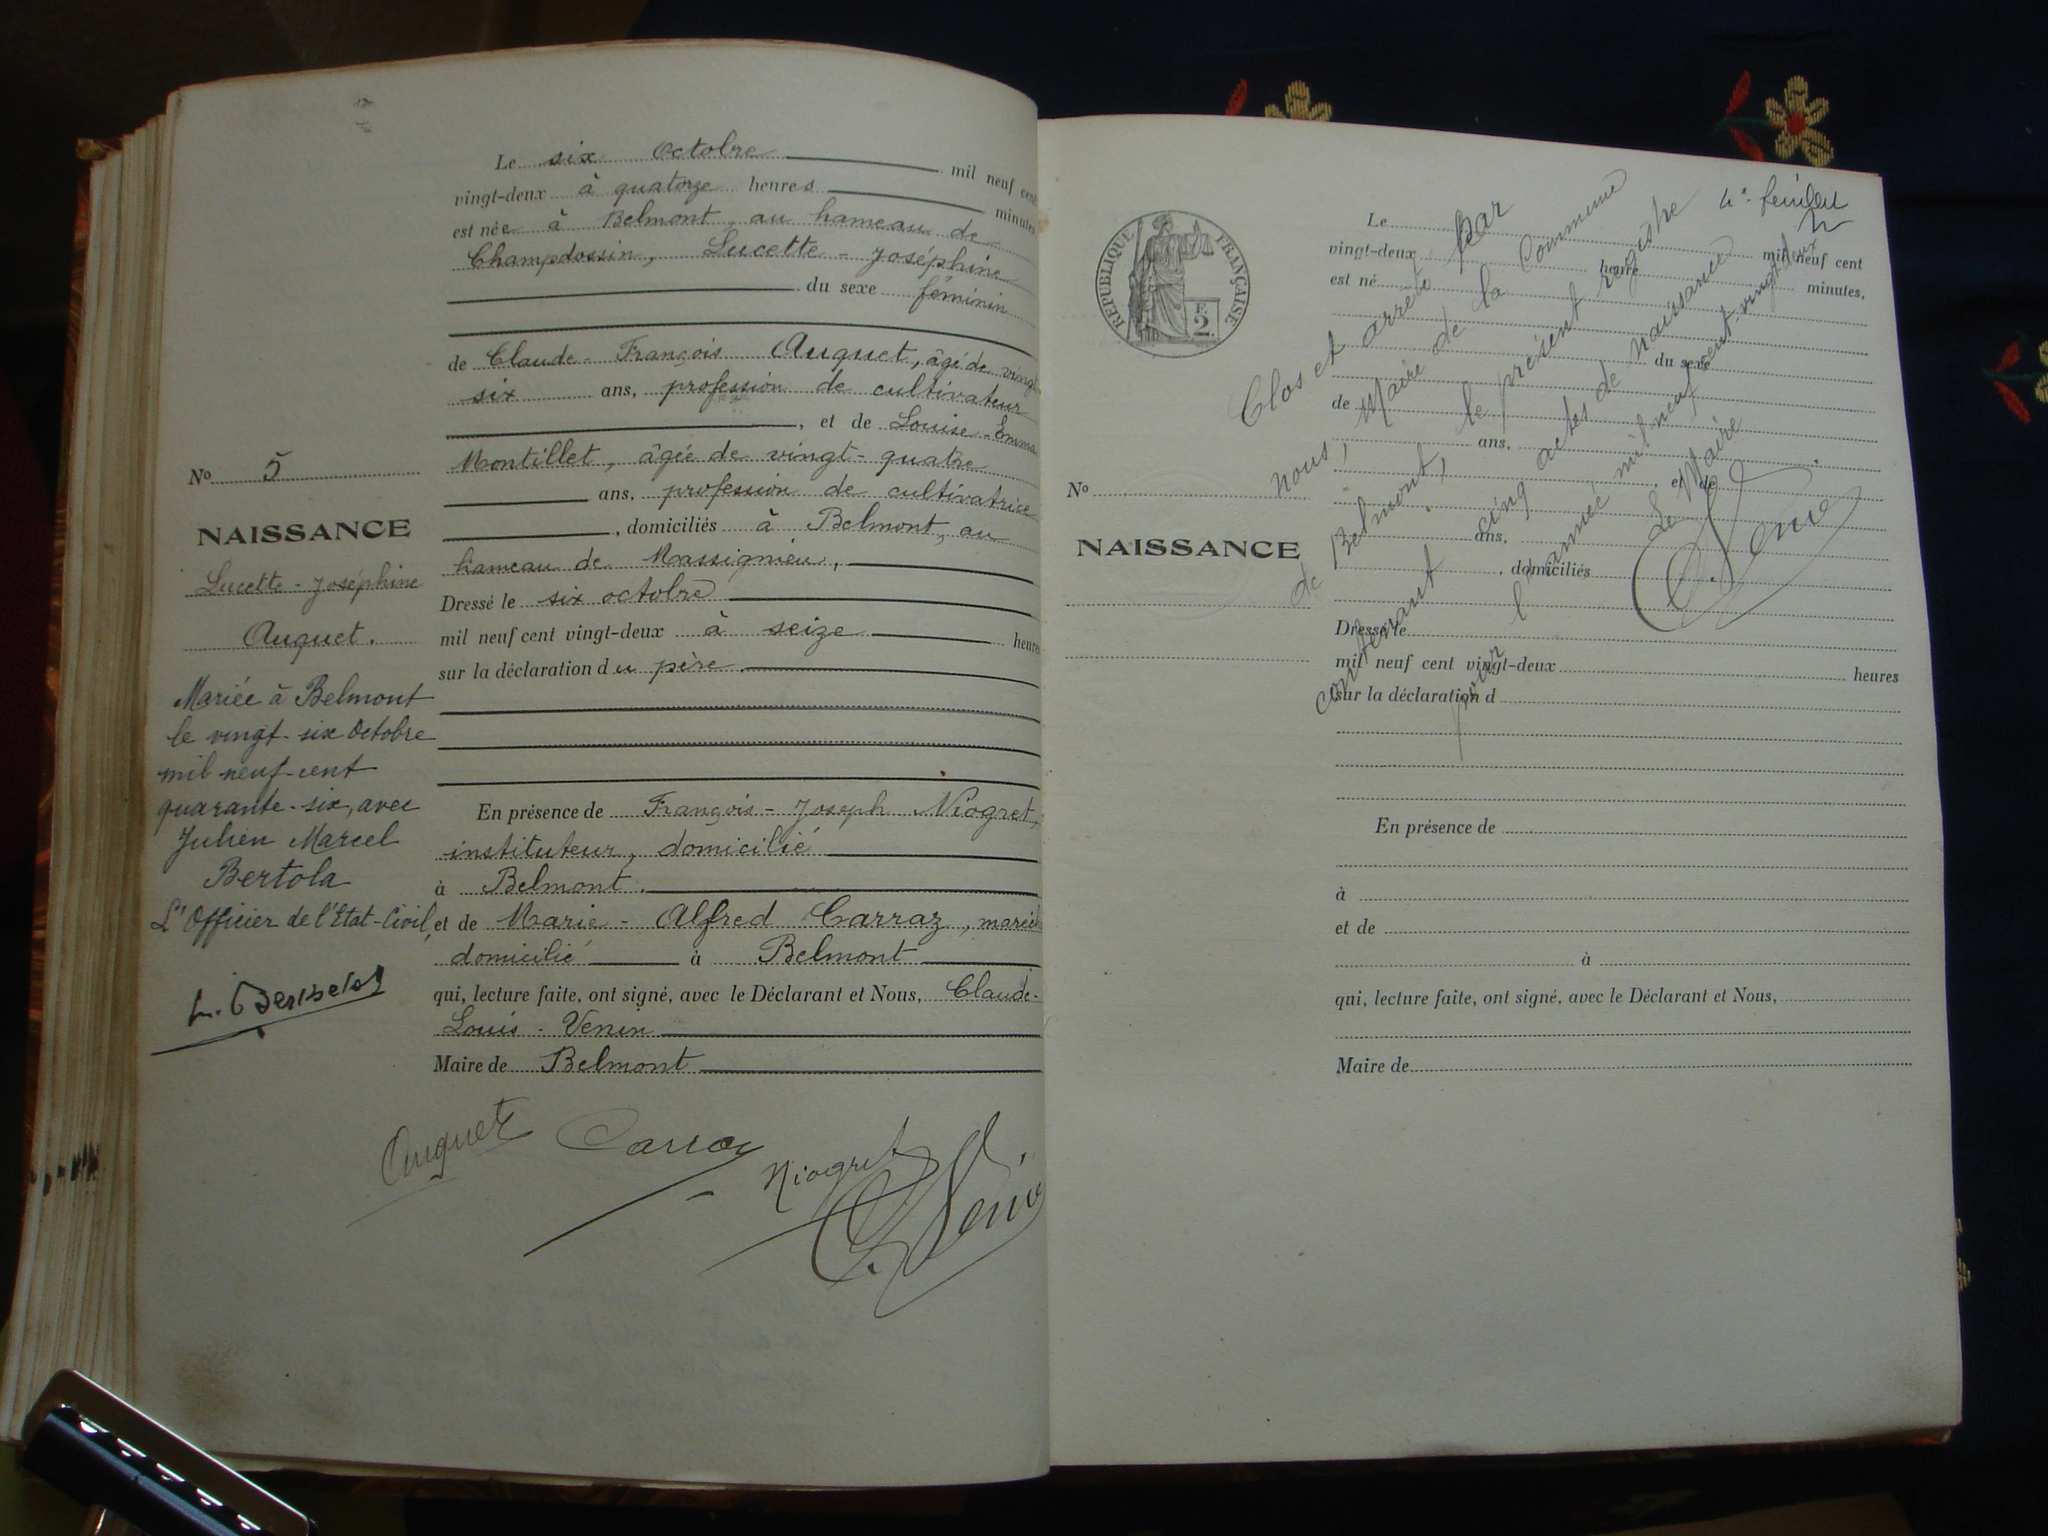 Le six Octobre mil neuf cent
vingt-deux à quatorze heures minutes
est née à Belmont, au hameau de
Champdossin, Lucette-Joséphine
du sexe féminin
de Claude-François Auguet, âgé de vingt-
six ans, profession de cultivateur
, et de Louise-Emma
Montillet, âgée de vingt-quatre
ans, profession de cultivatrice
, domiciliés à Belmont, au
hameau de Massignieu,
Dressé le six octobre
mil neuf cent vingt-deux à seize heures
sur la déclaration du père.
En présence de François-Joseph Niogret,
instituteur, domicilié
à Belmont.
et de Marie-Alfred Carraz, maréch
domicilié à Belmont
qui, lecture faite, ont signé, avec le Déclarant et Nous, Claude-
Louis-Venin
Maire de Belmont
Auguet Carraz Niogret C. Venin
No 5
NAISSANCE
Lucette-Joséphine
Auguet.
Mariée à Belmont
le vingt-six Octobre
mil neuf-cent
quarante-six, avec
Julien Marcel
Bertola
L'Officier de l'Etat-Civil,
L. Berthelot
4e feuillet
RÉPUBLIQUE FRANÇAISE
F. 2
No
NAISSANCE
Le mil neuf cent
vingt-deux heure minutes,
est né
du sexe
de
ans,
, et de
ans,
, domiciliés
Dressé le
mil neuf cent vingt-deux heures
sur la déclaration d
En présence de
à
et de
à
qui, lecture faite, ont signé, avec le Déclarant et Nous,
Maire de
Clos et arrêté par
nous, Maire de la Commune
de Belmont, le présent registre
contenant cinq actes de naissance
pour l'année mil neuf cent vingt-deux
Le Maire
C. Venin